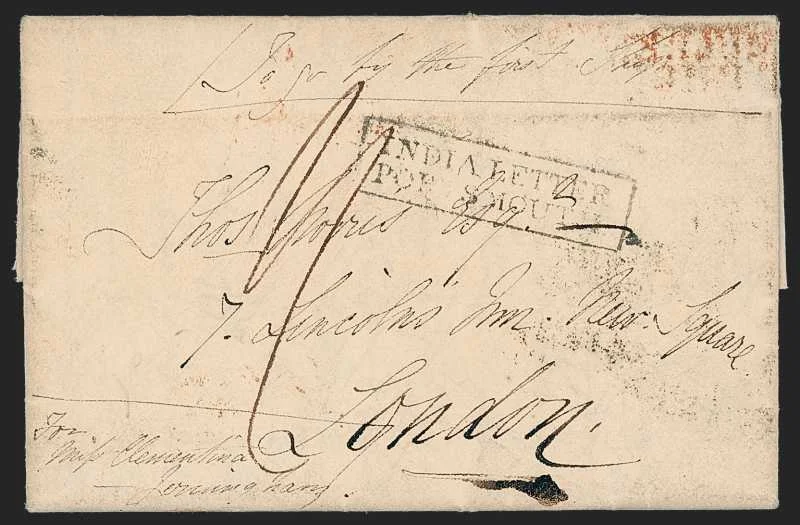 To go by the first Ship
INDIA LETTER
PORTSMOUTH
Thos Morris Esqr.
7. Lincoln's Inn. New Square
London.
For
Miss Clementina
Jerningham